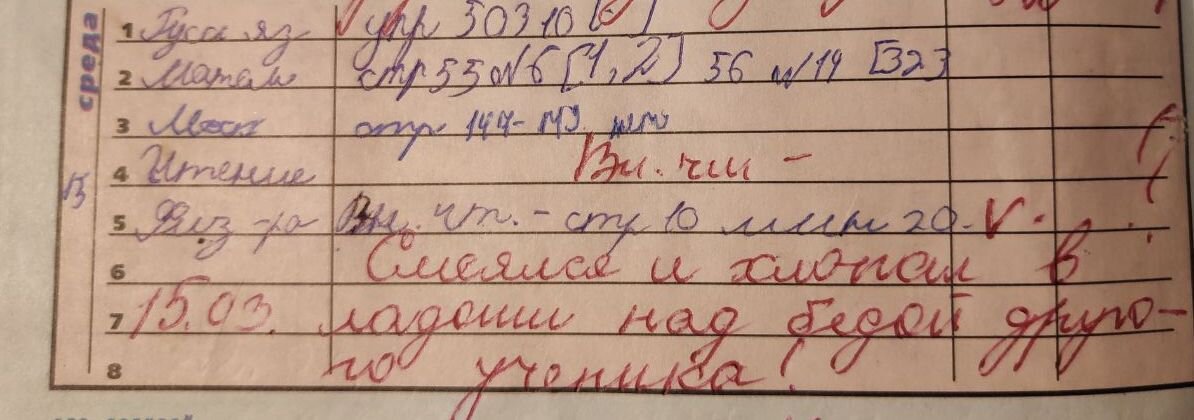 среда
1 Русск яз упр 503 10
2 Матем стр 55 №6 [1, 2] 56 №14 [323
3 стр 144-
4 Чтение Вн. чт -
5 Физ-ра Вн. чт. - стр 10 мин 20. V
6 Смеялся и хлопал в
7 15.03. ладоши над бедой друго-
8 го ученика!